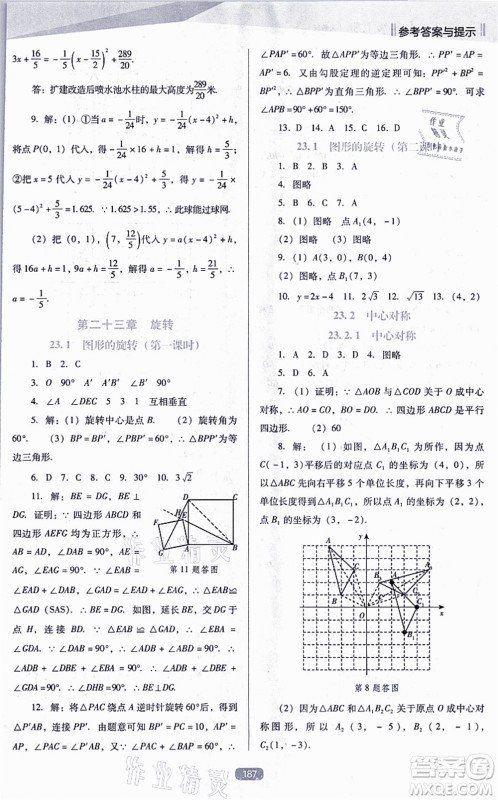 参考答案与提示
3x+16/5=-1/5(x-15/2)²+289/20.
答：扩建改造后喷水池水柱的最大高度为289/20米.
9. 解：(1)①当a=-1/24时，y=-1/24(x-4)²+h,
将点P(0，1)代入，得-1/24×16+h=1，解得h=5/3.
②把x=5代入y=-1/24(x-4)²+5/3，得y=-1/24×(5-
4)²+5/3=1.625. ∵1.625>1.55，∴此球能过球网.
(2)把(0，1)，(7，12/5)代入y=a(x-4)²+h，
得16a+h=1，9a+h=12/5，解得a=-1/5，h=21/5，∴
a=-1/5.
第二十三章 旋转
23.1 图形的旋转(第一课时)
1. B 2. C
3. O 90° A′ B′ ∠B′ 90°
4. ∠A ∠DEC 5 3 1 互相垂直
5. 解：(1)旋转中心是点B. (2)旋转角度是
60°. (3)BP=BP′，∠PBP′=60°，∴△BPP′为等
边三角形.
6. D 7. C 8. C 9. 30° 10. 3√2
11. 解：BE=DG，BE⊥
DG. 证明：∵四边形ABCD和四
边形AEFG均为正方形，∴
AB=AD，∠DAB=90°，
AE=AG，∠EAG=90°，∴
∠EAD+∠DAB=∠EAD+
∠EAG，即∠EAB=
∠GAD，∴△EAB≌△
GAD(SAS). ∴BE=DG. 如图，延长BE交DG于
点H，连接BD. ∵△EAB≌△GAD，∴∠EBA=
∠GDA. ∵∠DAB=90°，∴∠ADB+∠ABD=90°. ∴
∠ADB+∠DBE+∠EBA=90°. ∴∠ADB+
∠DBE+∠GDA=90°. ∴∠DHB=90°. ∴BE⊥DG.
第11题答图
12. 解：将△PAC绕点A逆时针旋转60°后，得
到△P′AB，连接PP′. 由题意可知BP′=PC=10，
∵∠BAC=60°，∴∠PAC+∠BAP=60°. ∴∠P′AB+
∠PAP′=60°. 故△APP′为等边三角形. ∴PP′=AP=
AP′=6. 又由勾股定理的逆定理可知：PP′²+BP²=
BP′²，∴△BPP′为直角三角形. ∴∠BPP′=90°. 可求
∠APB=90°+60°=150°.
13. D 14. A 15. C 16. D
23.1 图形的旋转(第二课时)
1. B 2. B 3. A
4. 图略
5. B 6. C 7. A
8. (1)图略 点A₁(4，-1)
(2)图略 (3)图略
9. (1)(3，0) (2)图略
10. y=2x-4 11. 2√3 12. √13 13. (4，2)
23.2 中心对称
23.2.1 中心对称
1. A 2. D 3. D 4. A 5. D 6. 12
7. (1)证明：∵△AOB与△COD关于O成中心
对称，∴OA=OC，OB=OD. ∴四边形ABCD是平行
四边形. (2)60
8. 解：(1)如图，△A₁B₁C₁为所作，因为点
C(-1，3)平移后的对应点C₁的坐标为(4，0)，所
以△ABC先向右平移5个单位长度，再向下平移3个
单位长度得到△A₁B₁C₁，所以点A₁的坐标为(2，
2)，点B₁的坐标为(3，-2).
第8题答图
(2)因为△ABC和△A₂B₂C₂关于原点O成中心对
称图形，所以A₂(3，-5)，B₂(2，-1)，
C₂(1，-3).
187